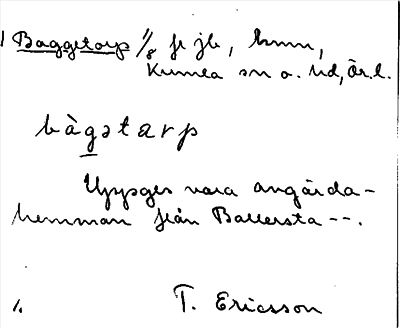 Baggetorp 1/8 fr jb, hmn,
Kumla sn o. hd, Ör. l.
bàgetærp
Uppges vara avgärda-
hemman från Ballersta --.
T. Ericsson